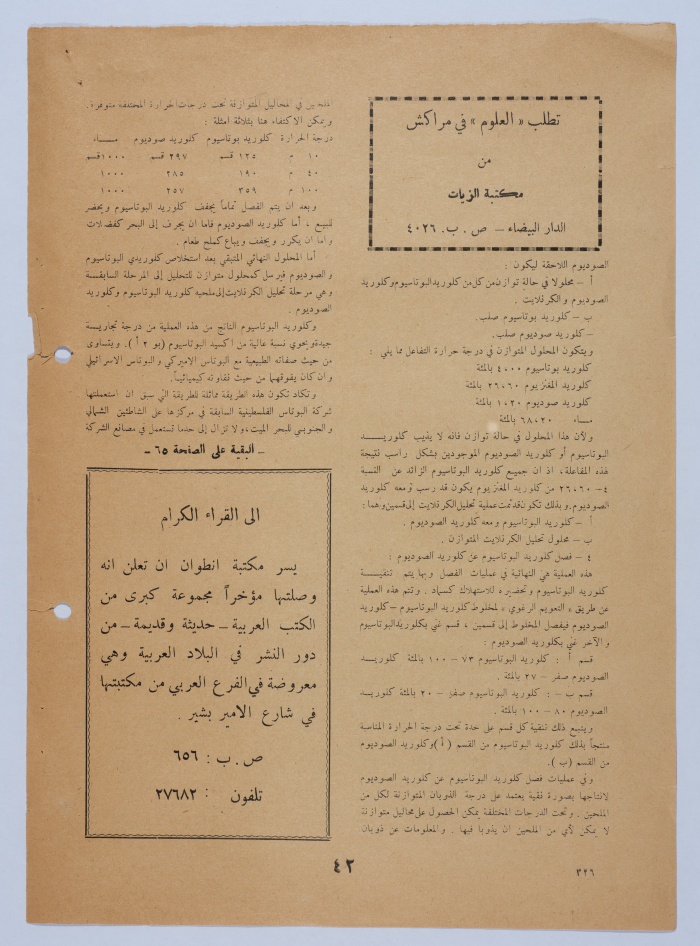 تطلب « العلوم » في مراكش
من
مكتبة الزيات
الدار البيضاء – ص . ب. ٤٠٢٦
الصوديوم اللاحقة ليكون :
أ – محلولا في حالة توازن من كل من كلوريد البوتاسيوم وكلوريد
الصوديوم والكرنلايت .
ب – كلوريد بوتاسيوم صلب.
– كلوريد صوديوم صلب.
ويتكون المحلول المتوازن في درجة حرارة التفاعل مما يلي :
كلوريد بوتاسيوم ٤,٠٠ بالمئة
كلوريد المغنزيوم ٢٦,٦٠ بالمئة
كلوريد صوديوم ١,٢٠ بالمئة
مـاء ٦٨,٢٠ بالمئة
ولأن هذا المحلول في حالة توازن فانه لا يذيب كلوريـد
البوتاسيوم أو كلوريد الصوديوم الموجودين بشكل راسب نتيجة
لهذه المفاعلة ، اذ ان جميع كلوريد البوتاسيوم الزائد عن النسبة
٤ – ٢٦,٦٠ من كلوريد المغنزيوم يكون قد رسب ومعه كلوريد
الصوديوم. وبذلك تكون قد تمت عملية تحليل الكرنلايت إلى قسمين وهما :
أ – كلوريد البوتاسيوم ومعه كلوريد الصوديوم .
ب – محلول تحليل الكرنلايت المتوازن .
٤ – فصل كلوريد البوتاسيوم عن كلوريد الصوديوم :
هذه العملية هي النهائية في عمليات الفصل وبها يتم تنقيـة
كلوريد البوتاسيوم وتحضيره للاستهلاك كسماد . وتتم هذه العملية
عن طريق « التعويم الرغوي » لمخلوط كلوريد البوتاسيوم – كلوريد
الصوديوم فيفصل المخلوط إلى قسمين ، قسم غني بكلوريد البوتاسيوم
والآخر غني بكلوريد الصوديوم :
قسم أ : كلوريد البوتاسيوم ٧٣ – ١٠٠ بالمئة كلوريـد
الصوديوم صفر – ٢٧ بالمئة .
قسم ب – : كلوريد البوتاسيوم صفر – ٢٠ بالمئة كلوريـد
الصوديوم ٨٠ – ١٠٠ بالمئة .
ويتبع ذلك تنقية كل قسم على حدة تحت درجة الحرارة المناسبة
منتجاً بذلك كلوريد البوتاسيوم من القسم ( أ ) وكلوريد الصوديوم
من القسم ( ب ).
وفي عمليات فصل كلوريد البوتاسيوم عن كلوريد الصوديوم
لانتاجها بصورة نقية يعتمد على درجة الذوبان المتوازنة لكل من
الملحين . وتحت الدرجات المختلفة يمكن الحصول على محاليل متوازنة
لا يمكن لأي من الملحين ان يذوبا فيها . والمعلومات عن ذوبان
الملحين في المحاليل المتوازنة تحت درجات الحرارة المختلفة متوفرة.
ويمكن الاكتفاء هنا بثلاثة امثلة :
درجة الحرارة كلوريد بوتاسيوم كلوريد صوديوم مـاء
١٠ م ١٢٥ قسم ٢٩٧ قسم ١٠٠٠ قسم
٤٠ م ١٩٠ ٢٨٥ ١٠٠٠
١٠٠ م ٣٥٩ ٢٥٧ ١٠٠٠
وبعد ان يتم الفصل تماماً يجفف كلوريد البوتاسيوم ويحضر
للبيع ، أما كلوريد الصوديوم فاما ان يجرف إلى البحر كفضلات
واما ان يكرر ويجفف ويباع كملح طعام .
أما المحلول النهائي المتبقي بعد استخلاص كلوريدي البوتاسيوم
والصوديوم فيرسل كمحلول متوازن للتحليل إلى المرحلة السابقـة
وهي مرحلة تحليل الكرنلايت إلى ملحيه كلوريد البوتاسيوم وكلوريد
الصوديوم .
وكلوريد البوتاسيوم الناتج من هذه العملية من درجة تجاريـة
جيدة ويحوي نسبة عالية من اكسيد البوتاسيوم ( بو ٢ أ ). ويتساوى
من حيث صفاته الطبيعية مع البوتاس الاميركي والبوتاس الاسرائيلي
وان كان يفوقهما من حيث نقاوته كيميائيـاً.
وتكاد تكون هذه الطريقة مماثلة للطريقة التي سبق ان استعملتها
شركة البوتاس الفلسطينية السابقة في مركزها على الشاطئين الشمالي
والجنوبي للبحر الميت، ولا تزال إلى حدما تستعمل في مصانع الشركة
– البقية على الصفحة ٦٥ –
الى القراء الكرام
يسر مكتبة انطوان ان تعلن انه
وصلتها مؤخراً مجموعة كبرى من
الكتب العربية – حديثة وقديمة – من
دور النشر في البلاد العربية وهي
معروضة في الفرع العربي من مكتبتها
في شارع الامير بشير .
ص . ب : ٦٥٦
تلفون : ٢٧٦٨٢
٤٢
٣٤٦